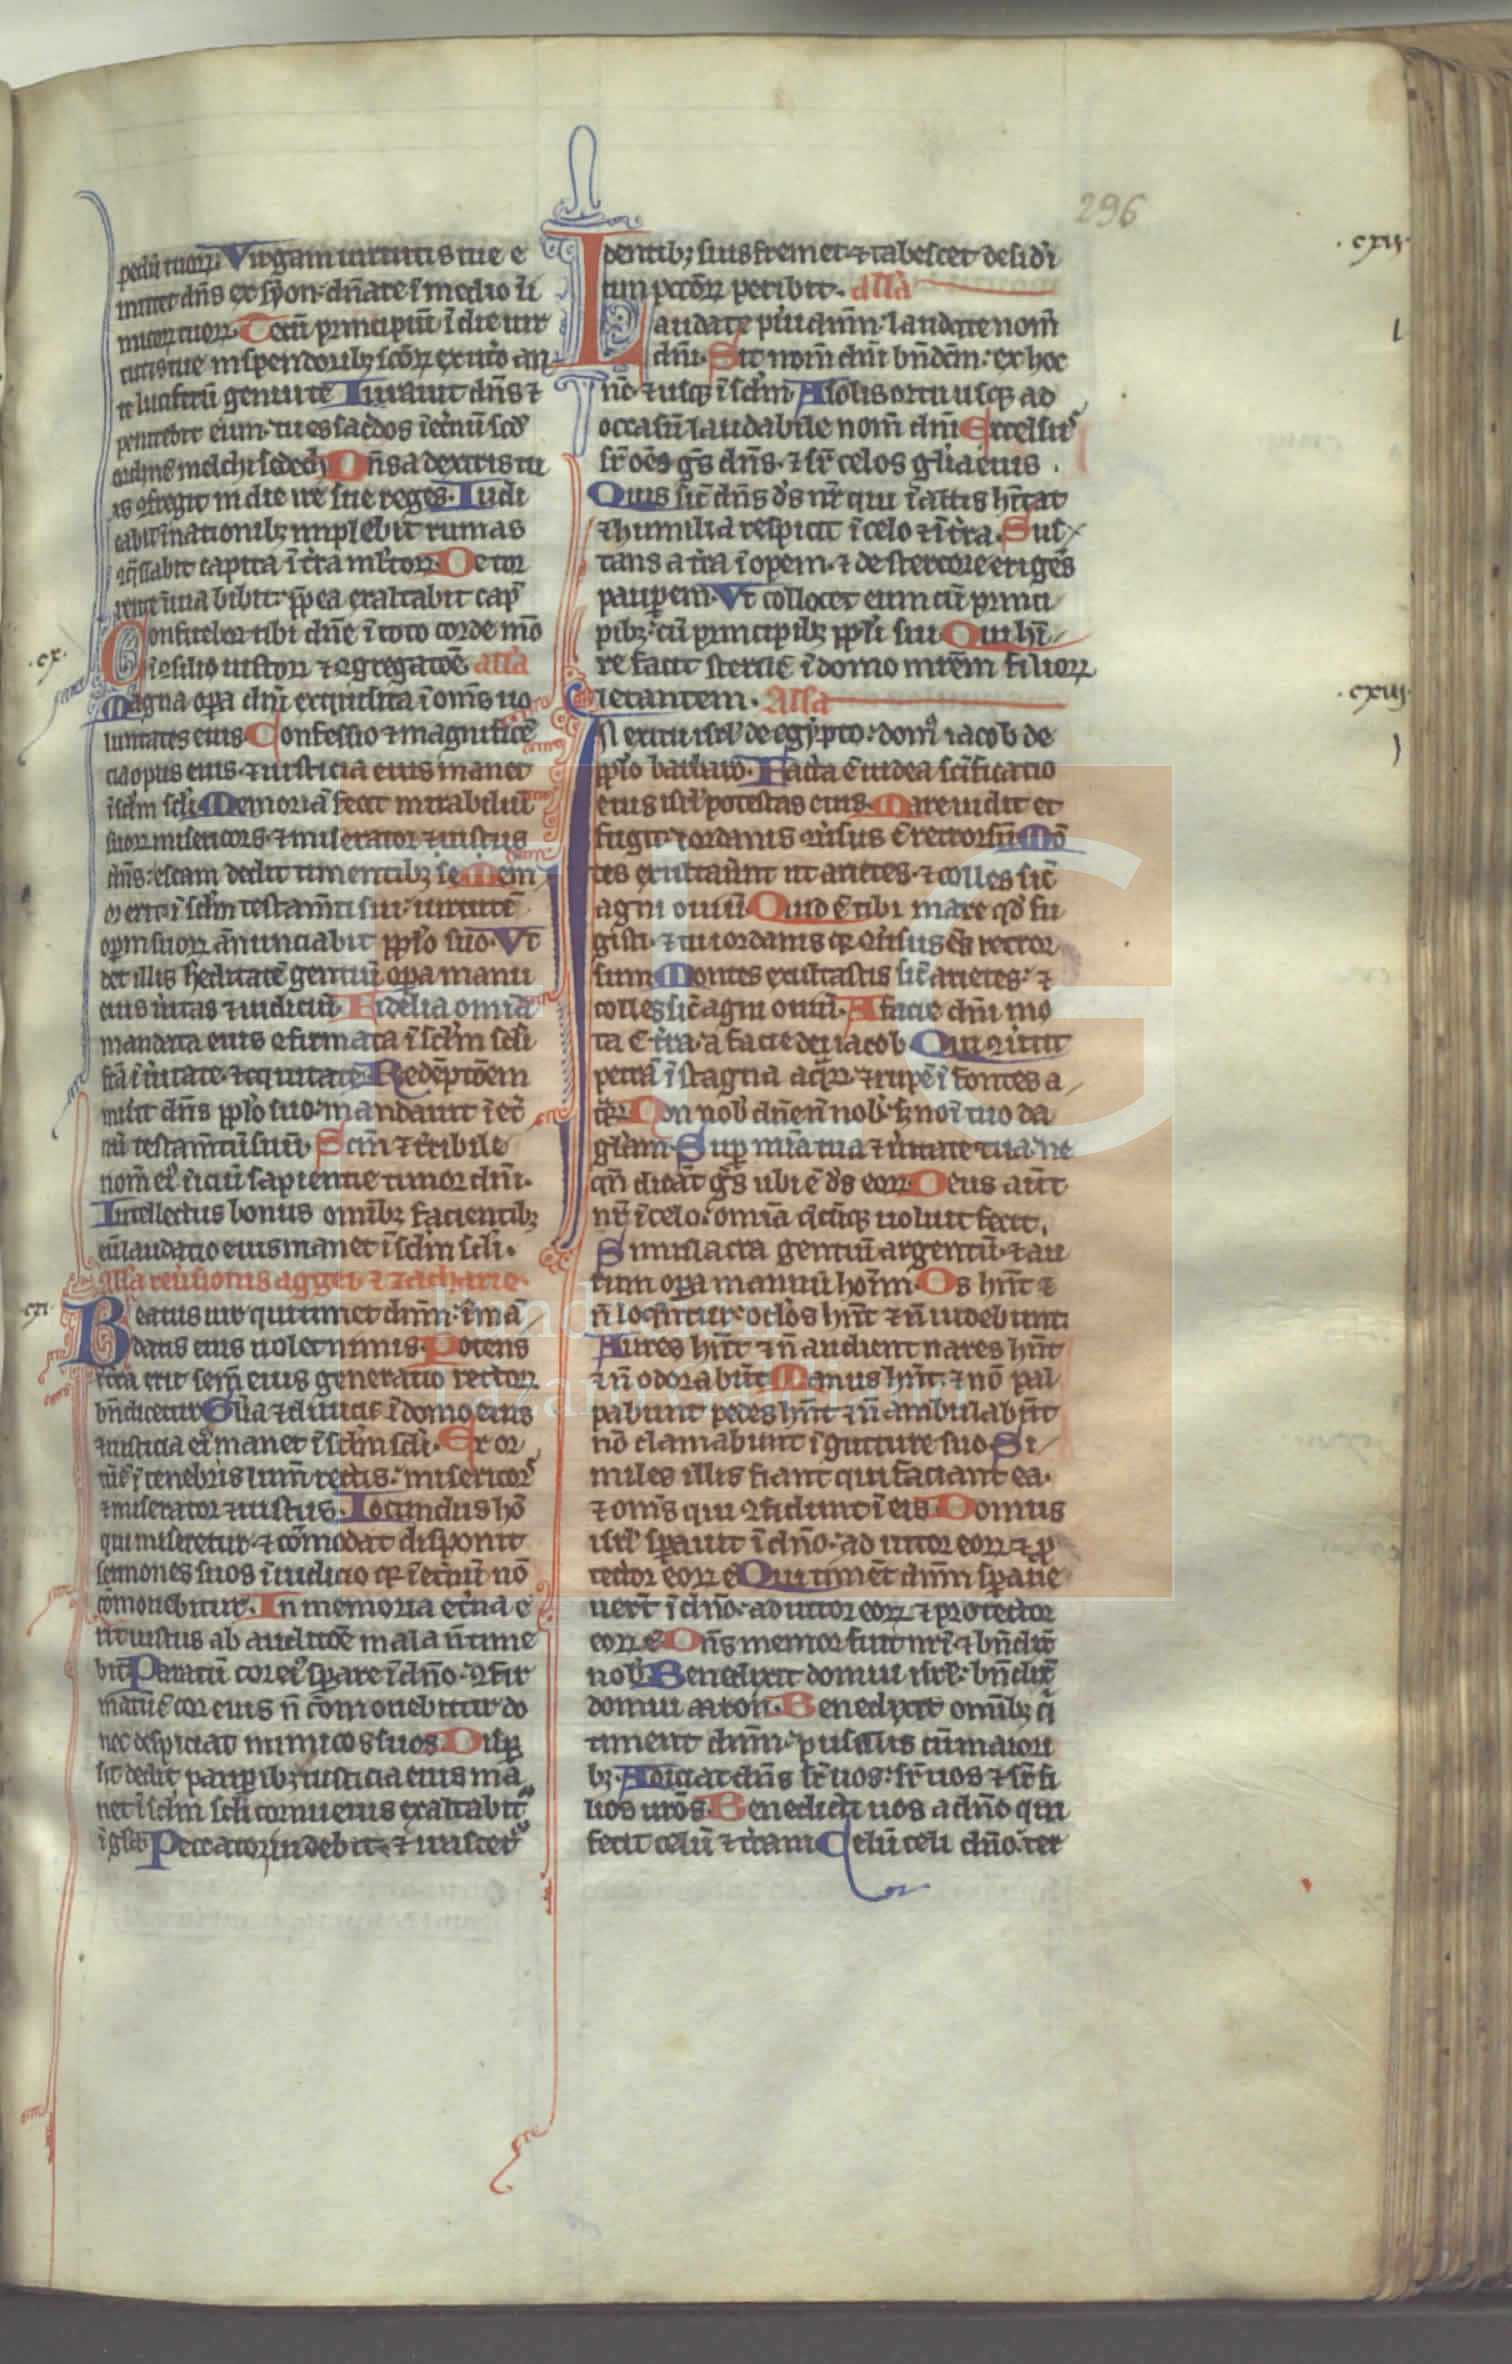 296
pedū tuoꝝ. Virgam uirtutis tue e
mittet dn̄s ex syon: dn̄are ī medio īi
micoꝝ tuoꝝ. Tecū principiū ī die uir
tutis tue in splendoribꝫ sc̄oꝝ ex utō an
te luciferū genui te Iurauit dn̄s ⁊
penitebit eum: tu es sac̄dos īet̄nū scd̄
ordinē melchisedech Dn̄s a dextris tu
is ꝯfregit in die ire sue reges. Iudi
cabit ī nationibꝫ implebit ruinas
ꝯq̄ssabit capita ī tr̄a ml̄toꝝ. De tor
rente ī uia bibit: ꝓpt̄ea exaltabit cap̄
.cx.
Confitebor tibi dn̄e ī toto corde mō
ī ꝯsilio iustoꝝ ⁊ ꝯgregatōē all̄a
Magna oꝑa dn̄i exquisita ī om̄s uo
luntates eius Confessio ⁊ magnificē
cia opus eius. ⁊ iusticia eius manet
ī sc̄lm sc̄li Memoriā fecit mirabiliū
suoꝝ misericors ⁊ miserator ⁊ iustus
dn̄s: escam dedit timentibꝫ se Mem
or erit ī sc̄lm testam̄ti sui: uirtutē
oꝑm suoꝝ ānunciabit ppl̄o suo. Vt
det illis h̄editatē gentiū oꝑa manu
eius ūitas ⁊ iudiciū Fidelia omīa
mandata eius ꝯfirmata ī sc̄lm sc̄li
fc̄a ī ūitate ⁊ equitate Redēptōem
misit dn̄s ppl̄o suo: mandauit ī et̄
nū testam̄tū suū. Sc̄m ⁊ t̄ribile
nom̄ eꝰ īiciū sapientie timor dn̄i.
Intellectus bonus omībꝫ facientibꝫ
eū laudatio eius manet ī sc̄lm sc̄li.
all̄a reūsionis aggei ⁊ zacharie.
cxi.
Beatus uir qui timet dn̄m: ī mā
datis eius uolet nimis. Potens
ī tr̄a erit sem̄ eius generatio rectoꝝ
bn̄dicetur Gl̄ia ⁊ diuicie ī domo eius
⁊ iusticia eꝰ manet ī sc̄lm sc̄li. Exor
tū ē ī tenebris lum̄ rectis: misericors
⁊ miserator ⁊ iustus. Iocundus hō
qui miseretur ⁊ cōmodat disponit
sermones suos ī iudicio qꝛ ī et̄nū nō
cōmouebitur. In memoria et̄na e
rit iustus ab auditōe mala n̄ time
bit Paratū cor eiꝰ sꝑare ī dn̄o: ꝯfir
matū ē cor eius n̄ cōmouebitur do
nec despiciat inimicos suos Disꝑ
sit dedit pauꝑibꝫ iusticia eius mā
net ī sc̄lm sc̄li cornu eius exaltabit
ī gl̄ia Peccator uidebit ⁊ irascet̄
.cxij.
dentibꝫ suis fremet ⁊ tabescet desid̄i
um pccōꝝ peribit. all̄a
Laudate pūi dn̄m: laudate nom̄
dn̄i. Sit nom̄ dn̄i bn̄dc̄m: ex hoc
nc̄ ⁊ usqꝫ ī sc̄lm A solis ortu usqꝫ ad
occasū laudabile nom̄ dn̄i Excelsus
sr̄ om̄s gs̄ dn̄s. ⁊ sr̄ celos gl̄ia eius.
Quis sic̄ dn̄s ds̄ nr̄ qui ī altis h̄itat
⁊ humilia respicit ī celo ⁊ ī tr̄a. Susci
tans a tr̄a īopem. ⁊ de stercore eriges
pauꝑem. Vt collocet eum cū princi
pibꝫ: cū principibꝫ ppl̄i sui Qui hīta
re facit sterilē ī domo mr̄em filioꝝ
letantem. All̄a
.cxiij.
In exitu isrl̄ de egypto: domꝰ iacob de
ppl̄o barbaro. Facta ē iudea sc̄ificatio
eius isrl̄ potestas eius. Mare uidit et
fugit ⁊ iordanis ꝯūsus ē retrorsū Mō
tes exultaūnt ut arietes. ⁊ colles sic̄
agni ouiū. Quid ē tibi mare qd̄ fu
gisti. ⁊ tu iordanis qꝛ ꝯūsus es retror
sum Montes exultastis sic̄ arietes: ⁊
colles sic̄ agni ouiū. A facie dn̄i mo
ta ē tr̄a. a facie dei iacob Qui ꝯūtit
petrā ī stagna aq̄ꝝ: ⁊ rupē ī fontes a
q̄ꝝ Non nob̄ dn̄e n̄ nob̄: sꝫ noī tuo da
gl̄iam. Suꝑ mīa tua ⁊ ūitate tua. ne
qn̄ dicāt gs̄ ubi ē ds̄ eoꝝ Deus aūt
nr̄ ī celo: omīa q̄cūqꝫ uoluit fecit.
Simulacra gentiū argentū ⁊ au
rum oꝑa manuū hoīm. Os hn̄t ⁊
n̄ loq̄ntur: oclōs hn̄t ⁊ n̄ uidebunt
Aures hn̄t ⁊ n̄ audient nares hn̄t
⁊ n̄ odorabūt Manus hn̄t ⁊ nō pal
pabunt pedes hn̄t ⁊ n̄ ambulabūt
nō clamabunt ī gutture suo. Si
miles illis fiant qui faciant ea.
⁊ om̄s qui ꝯfidunt ī eis Domus
isrl̄ sꝑauit ī dn̄o. adiutor eoꝝ ⁊ ꝓ
tector eoꝝ ē Qui timēt dn̄m sꝑaue
uerūt ī dn̄o: adiutor eoꝝ ⁊ protector
eoꝝ ē Dn̄s memor fuit nri ⁊ bn̄dix̄
nob̄ Benedixit domui isrl̄: bn̄dix̄
domui aaron. Benedixit omībꝫ q̄
timent dn̄m: pusillis cū maiori
bꝫ Adiciat dn̄s sr̄ uos: sr̄ uos ⁊ sr̄ fi
lios urōs. Benedicti uos a dn̄o qui
fecit celū ⁊ tr̄am Celū celi dn̄o. ter